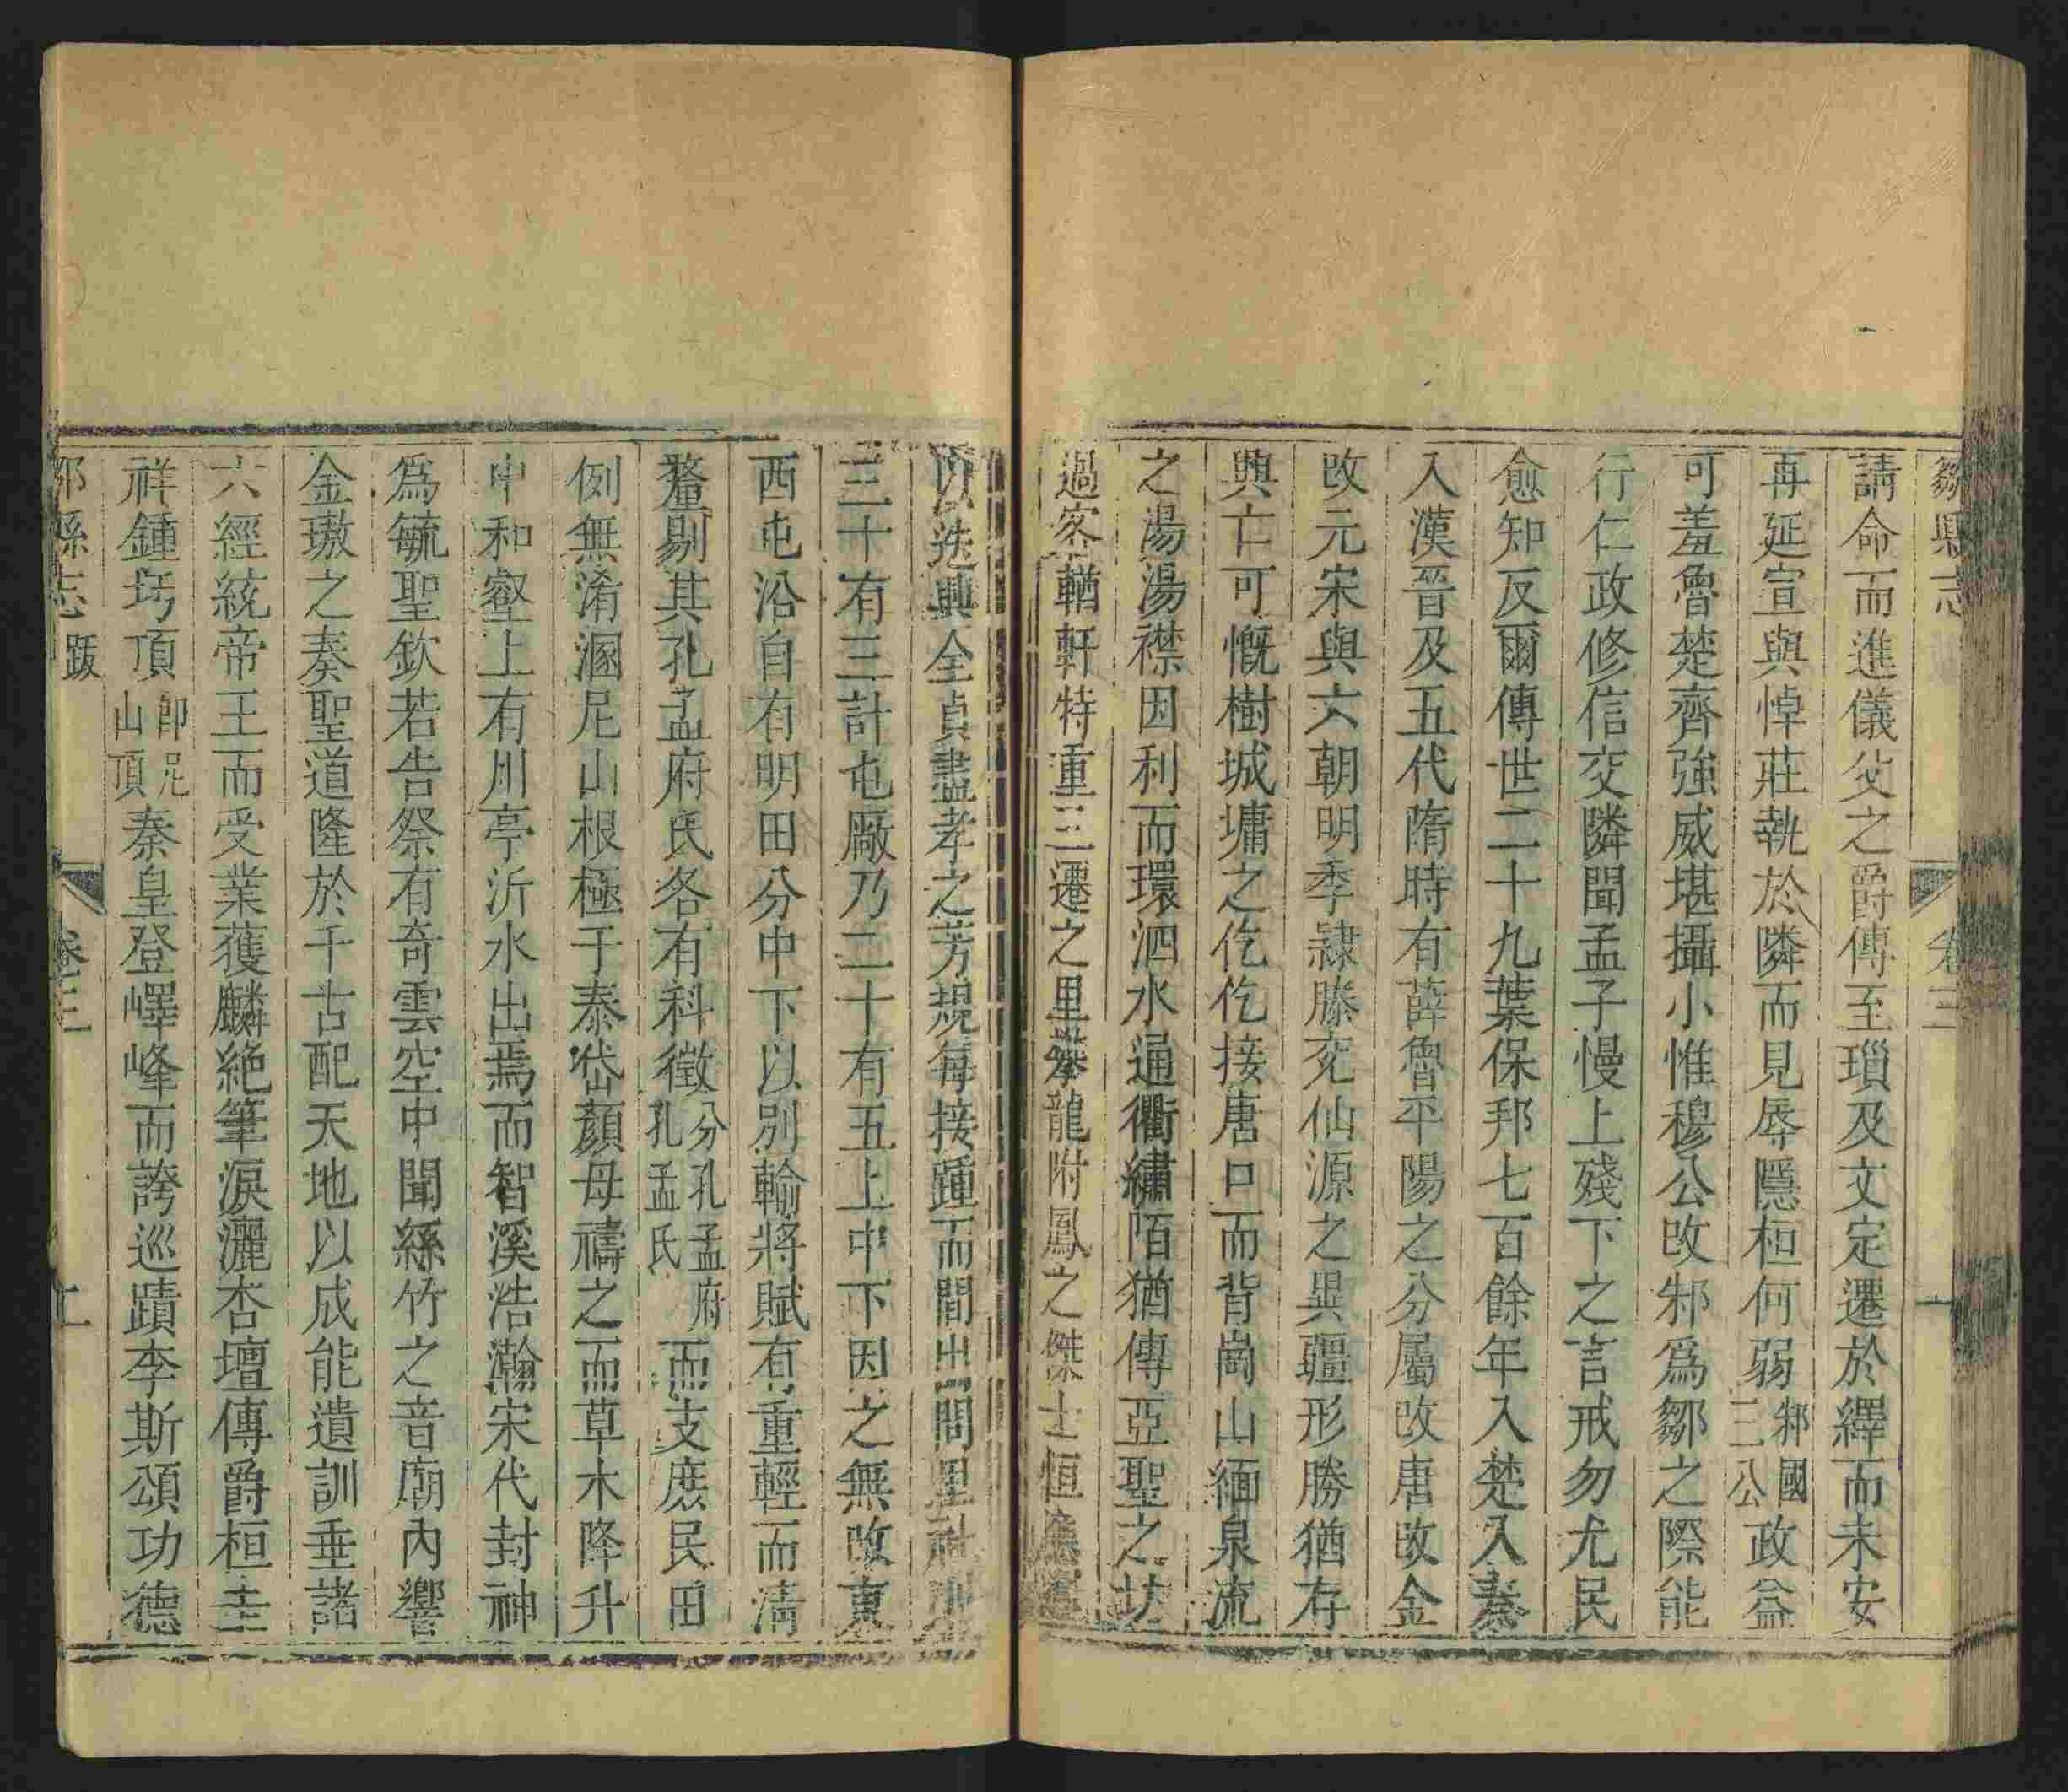 鄒縣志 卷三 一
請命而進儀父之爵傳至瑣及文定遷於繹而未安
再延宣與悼莊執於隣而見辱隱桓何弱邾國三公政益
可羞魯楚齊強威堪攝小惟穆公改邾爲鄒之際能
行仁政修信交隣聞孟子慢上殘下之言戒勿尤民
愈知反爾傳世二十九葉保邦七百餘年入楚入秦
入漢晉及五代隋時有薛魯平陽之分屬改唐改金
改元宋與六朝明季隷滕兖仙源之異疆形勝猶存
興亡可慨樹城墉之仡仡接唐口而背崗山緬泉流
之湯湯襟因利而環泗水通衢繡陌猶傳亞聖之坊
過客輶軒特重三遷之里攀龍附鳳之傑士恒應
迭興全貞盡孝之芳規每接踵而間出問里社
三十有三計屯厰乃二十有五上中下因之無改東
西屯沿自有明田分中下以別輸將賦有重輕而清
釐剔其孔孟府氏各有科徵分孔孟府孔孟氏而支庶民田
例無淆溷尼山根極于泰岱顏母禱之而草木降升
中和壑上有川亭沂水出焉而智溪浩瀚宋代封神
爲毓聖欽若告祭有奇雲空中聞絲竹之音廟內響
金璈之奏聖道隆於千古配天地以成能遺訓垂諸
六經統帝王而受業獲麟絶筆淚灑杏壇傳爵桓圭
祥鍾圬頂卽尼山頂秦皇登嶧峰而誇巡蹟李斯頌功德
縣志 跋 卷三